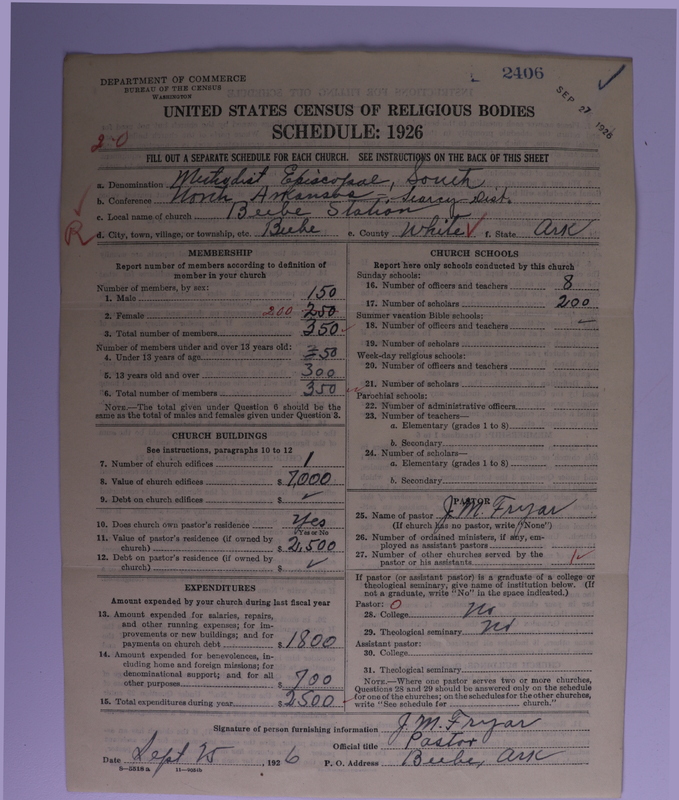 2406
DEPARTMENT OF COMMERCE
BUREAU OF THE CENSUS
WASHINGTON
SEP 27 1926
UNITED STATES CENSUS OF RELIGIOUS BODIES
SCHEDULE: 1926
2-0
FILL OUT A SEPARATE SCHEDULE FOR EACH CHURCH. SEE INSTRUCTIONS ON THE BACK OF THIS SHEET
a. Denomination Methodist Episcopal, South
b. Conference North Arkansas, Searcy Dist.
c. Local name of church Beebe Station
R
d. City, town, village, or township, etc. Beebe e. County White f. State Ark
MEMBERSHIP
Report number of members according to definition of
member in your church
Number of members, by sex:
1. Male 150
2. Female 200 250
3. Total number of members 350
Number of members under and over 13 years old:
4. Under 13 years of age 50
5. 13 years old and over 300
6. Total number of members 350
NOTE.—The total given under Question 6 should be the
same as the total of males and females given under Question 3.
CHURCH BUILDINGS
See instructions, paragraphs 10 to 12
7. Number of church edifices 1
8. Value of church edifices $ 7,000
9. Debt on church edifices $ ✓
10. Does church own pastor's residence Yes
Yes or No
11. Value of pastor's residence (if owned by
church) $ 2,500
12. Debt on pastor's residence (if owned by
church) $ ✓
EXPENDITURES
Amount expended by your church during last fiscal year
13. Amount expended for salaries, repairs,
and other running expenses; for im-
provements or new buildings; and for
payments on church debt $ 1800
14. Amount expended for benevolences, in-
cluding home and foreign missions; for
denominational support; and for all
other purposes $ 700
15. Total expenditures during year $ 2500
CHURCH SCHOOLS
Report here only schools conducted by this church
Sunday schools:
16. Number of officers and teachers 8
17. Number of scholars 200
Summer vacation Bible schools:
18. Number of officers and teachers ✓
19. Number of scholars
Week-day religious schools:
20. Number of officers and teachers
21. Number of scholars
Parochial schools:
22. Number of administrative officers
23. Number of teachers—
a. Elementary (grades 1 to 8)
b. Secondary
24. Number of scholars—
a. Elementary (grades 1 to 8)
b. Secondary
PASTOR
25. Name of pastor J. M. Fryar
(If church has no pastor, write "None")
26. Number of ordained ministers, if any, em-
ployed as assistant pastors
27. Number of other churches served by the
pastor or his assistants 1 ✓
If pastor (or assistant pastor) is a graduate of a college or
theological seminary, give name of institution below. (If
not a graduate, write "No" in the space indicated.)
Pastor: O
28. College No
29. Theological seminary No
Assistant pastor:
30. College
31. Theological seminary
NOTE.—Where one pastor serves two or more churches,
Questions 28 and 29 should be answered only on the schedule
for one of the churches; on the schedules for the other churches,
write "See schedule for church."
Signature of person furnishing information J. M. Fryar
Official title Pastor
Date Sept 25, 1926 P. O. Address Beebe, Ark
8—5318 a